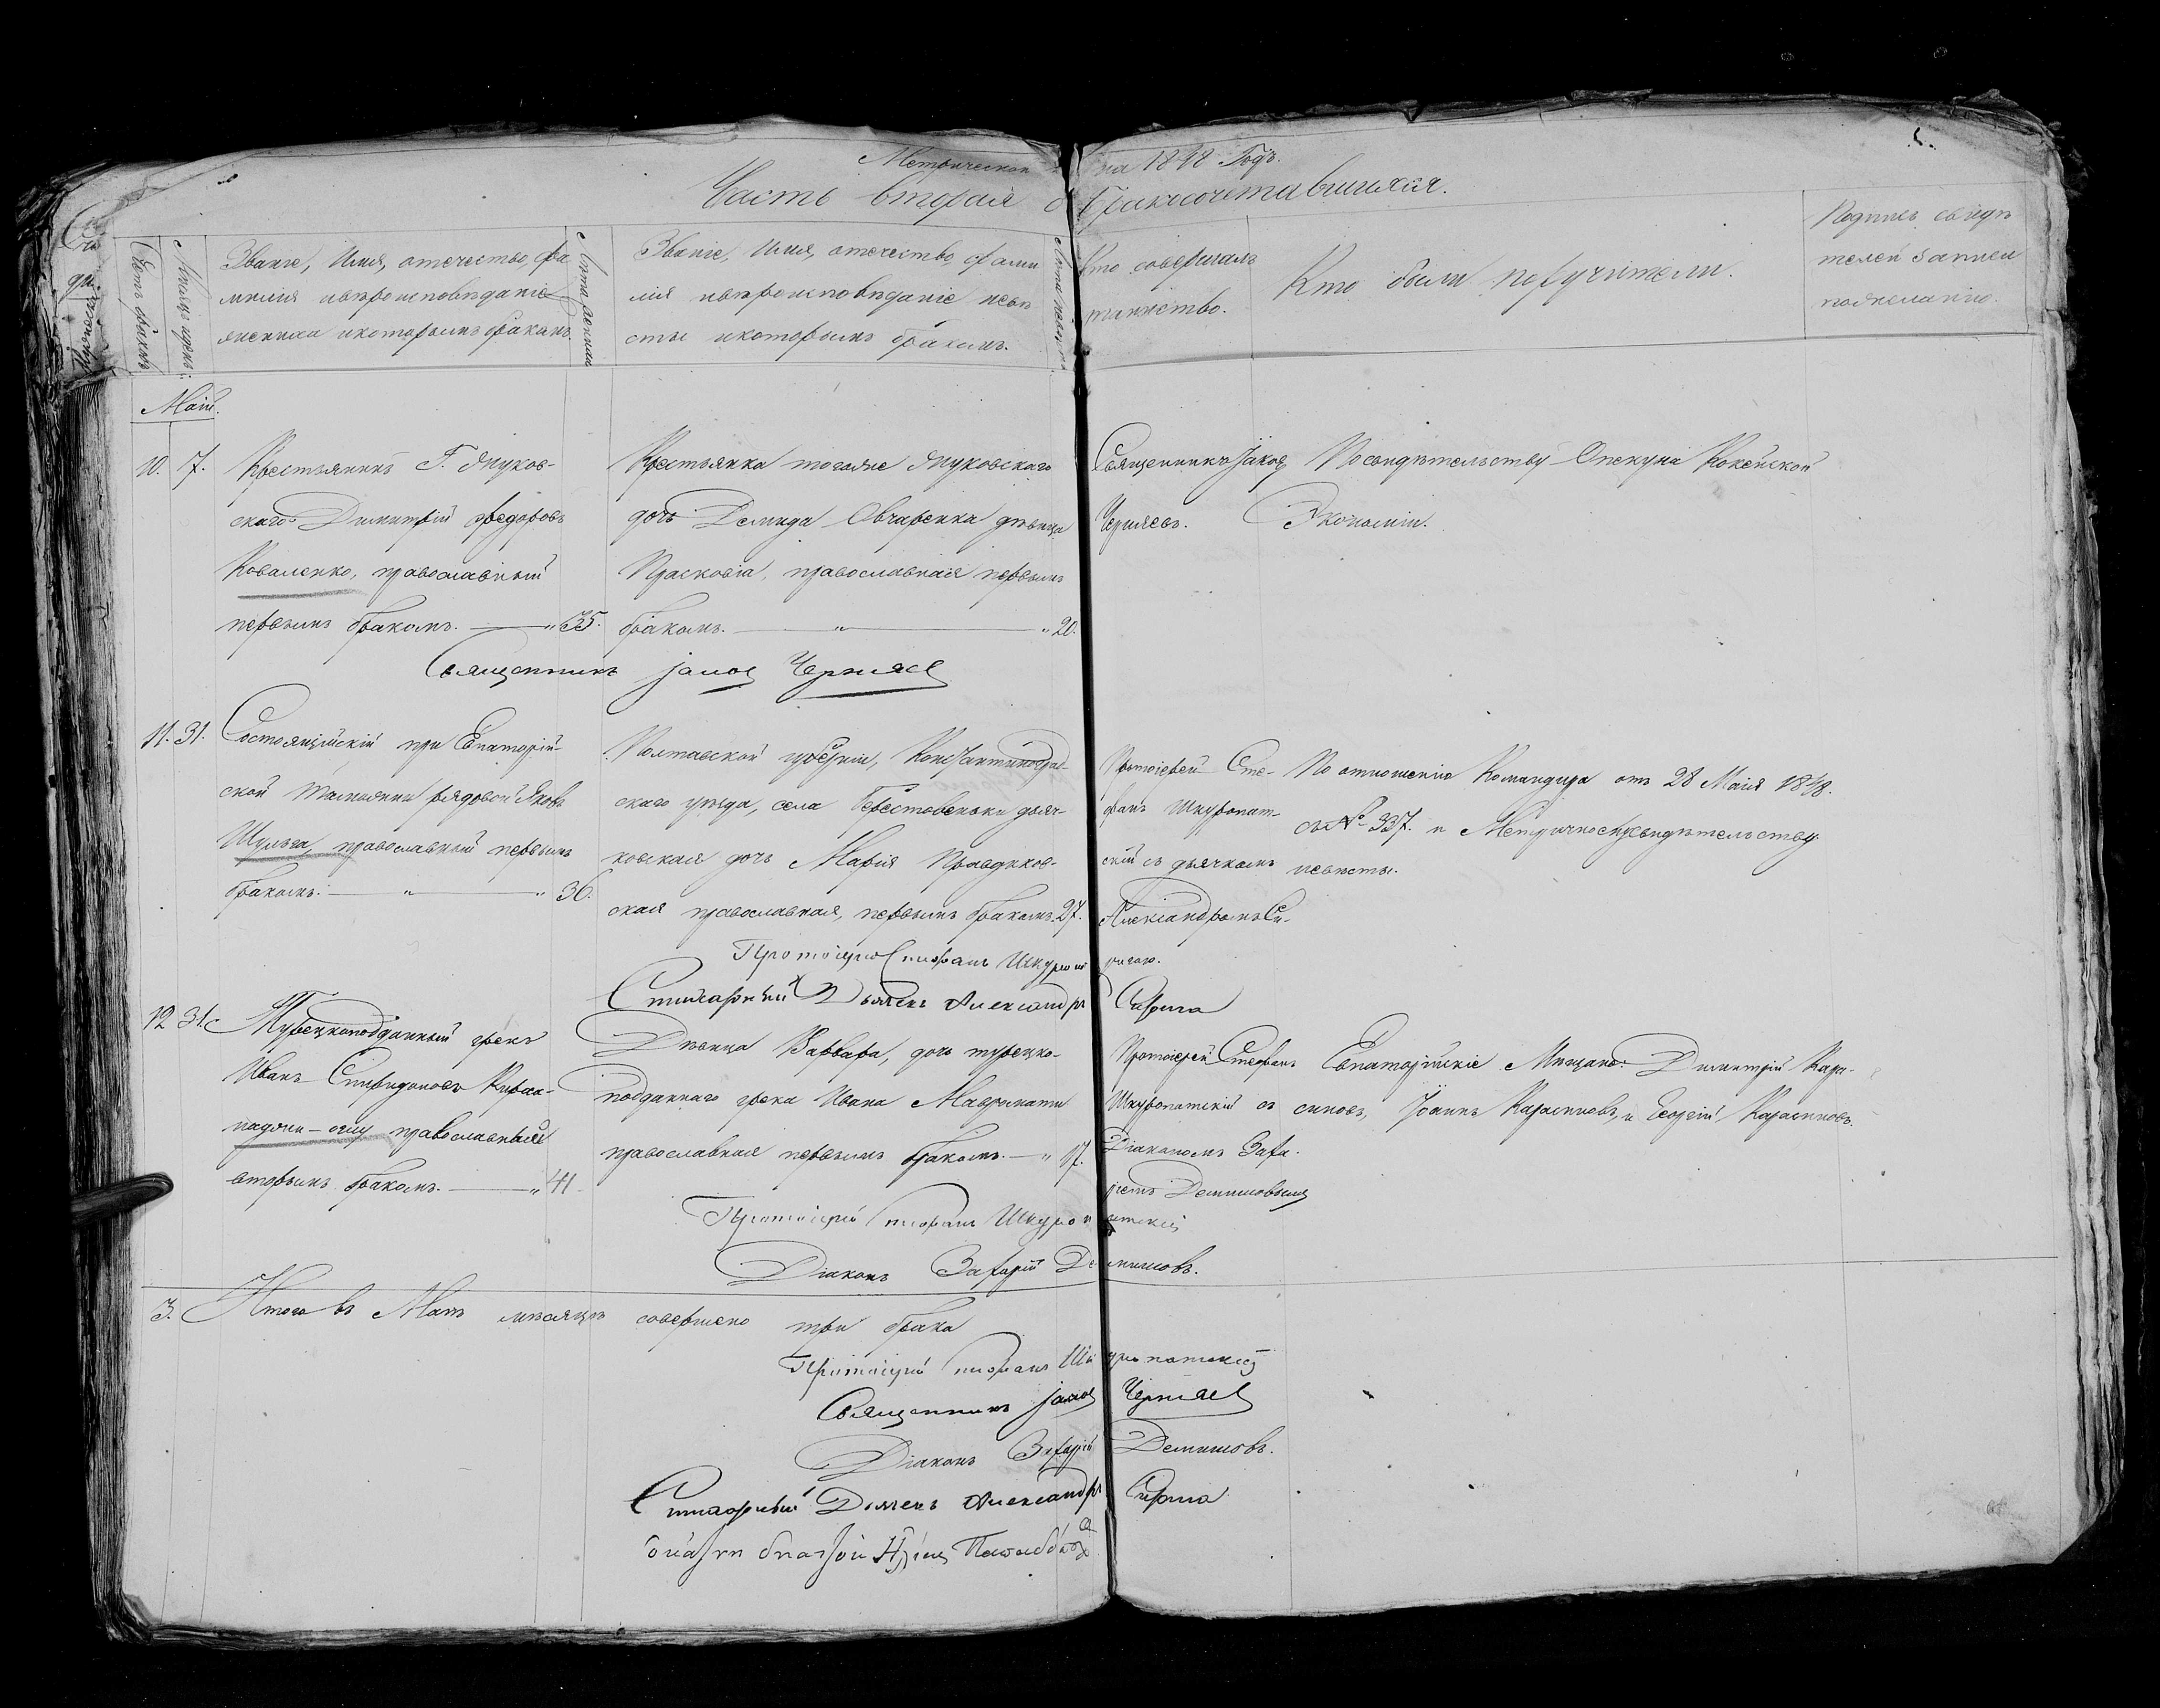 Метрической на 1848 Годъ.
Часть вторая о бракосочетавшихся.
Счетъ браковъ
Мѣсяцъ и день
Званіе, Имя, отечество, фа
милія и вѣроисповѣданіе
жениха и которымъ бракомъ.
Лѣта жениха
Званіе, Имя, отечество, фами
лія и вѣроисповѣданіе невѣ
сты и которымъ бракомъ.
Лѣта невѣсты
Кто совершалъ
таинство.
Кто были поручители.
Подпись свидѣ
телей записи
по желанію.
Маій.
10. 7. Крестьянинъ Г. Януков-
скаго Димитрій Ѳедоровъ
Коваленко, православный
первымъ бракомъ. — „ 35.
Крестьянка тогоже Януковскаго
дочь Демида Овчаренка дѣвица
Прасковія, православная первымъ
бракомъ. — „ — „ 20.
Священникъ Іаковъ
Черняевъ.
По свидѣтельству Опекуна Кокейской
Экономіи.
Священникъ Іаковъ Черняевъ
11. 31. Состоящійскій при Евпаторій-
ской Таможни рядовой Яковъ
Шульга, православный первымъ
бракомъ. — „ — „ 36.
Полтавской губерніи, Константиноград-
скаго уѣзда, села Берестовеньки дьяч-
ковская дочь Марія Правдиков-
ская православная, первымъ бракомъ. 27.
Протоіерей Сте-
фанъ Шкуропат-
скій съ дьячкомъ
Александромъ Си-
ригою.
По отношенію Командира отъ 28 Маія 1848.
съ № 337. и Метрическому свидѣтельству
невѣсты.
Протоіерей Стефанъ Шкуропат
Стихарный Дьячекъ Александръ Сирига
12 31. Турецкоподданный грекъ
Иванъ Спиридоновъ Кирья-
наджи-оглу православный
вторымъ бракомъ. — „ 41.
Дѣвица Варвара, дочь турецко-
подданнаго грека Ивана Маврокати
православная первымъ бракомъ. — „ 17.
Протоіерей Стефанъ
Шкуропатскій съ
Діакономъ Заха-
ріемъ Демишовымъ
Евпаторійскіе Мѣщане: Димитрій Кара-
синовъ, Іоаннъ Карасиновъ, и Георгій Карасиновъ.
Протоіерей Стефанъ Шкуропатскій
Діаконъ Захарій Демишовъ.
3. Итого въ Маѣ мѣсяцѣ совершено три брака
Протоіерей Стефанъ Шкуропатскій
Священникъ Іаковъ Черняевъ
Діаконъ Захарій Демишовъ.
Стихарный Дьячекъ Александръ Сирига